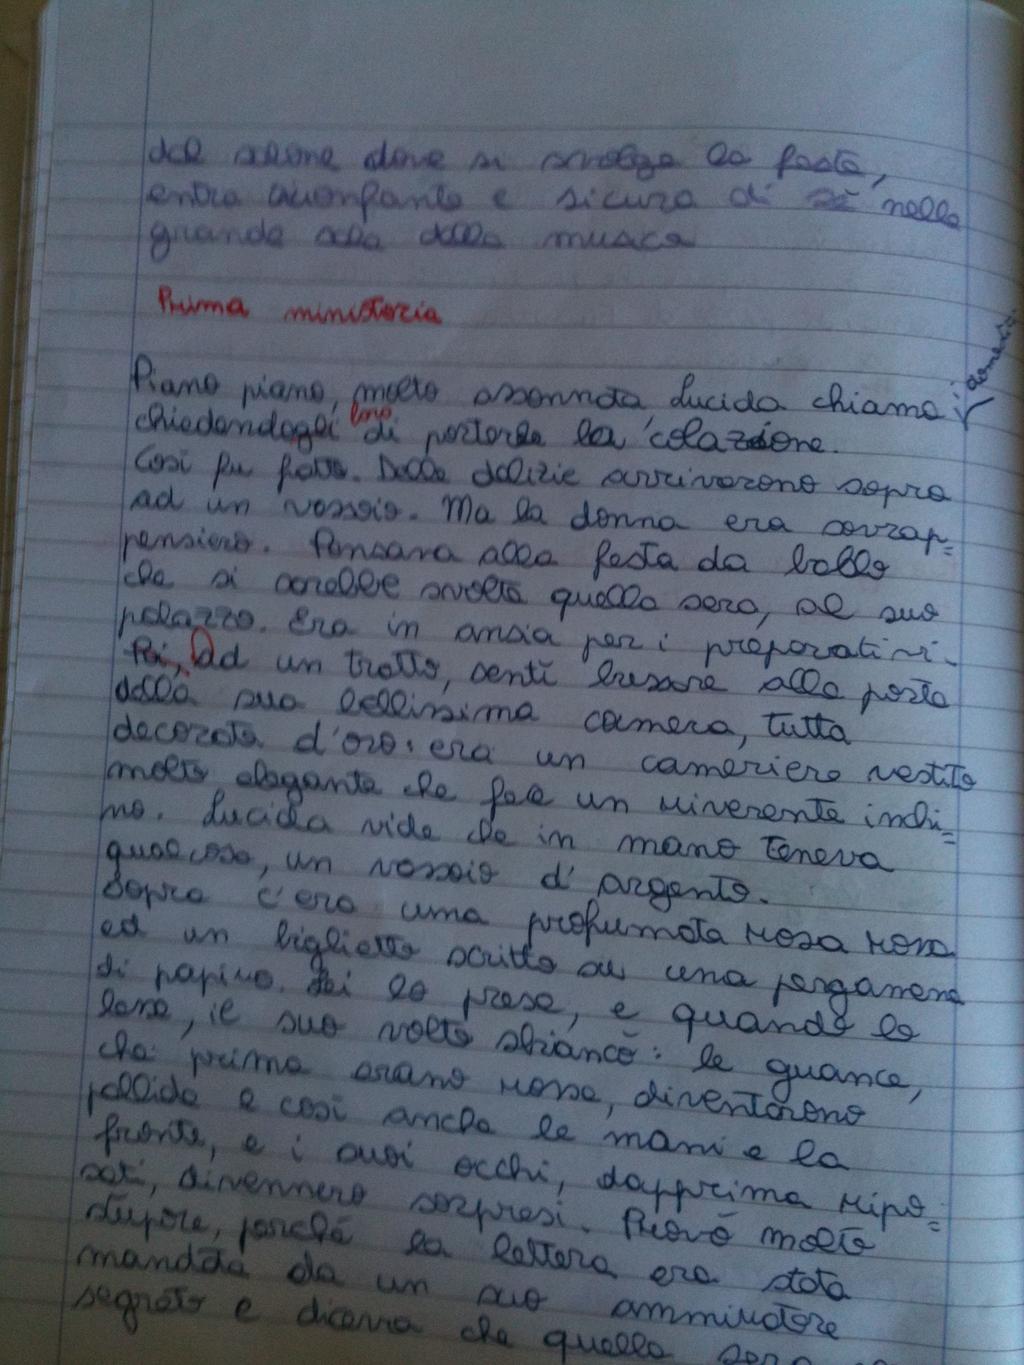 del salone dove si svolge la festa,
entra trionfante e sicura di sé nella
grande sala della musica
Prima ministoria
Piano piano, molto assonnata Lucida chiamò i domestici
chiedendogli loro di portarle la colazione.
Così fu fatto. Delle delizie arrivarono sopra
ad un vassoio. Ma la donna era sovrap=
pensiero. Pensava alla festa da ballo
che si sarebbe svolta quella sera, al suo
palazzo. Era in ansia per i preparativi.
Poi, ad un tratto, sentì bussare alla porta
della sua bellissima camera, tutta
decorata d'oro: era un cameriere vestito
molto elegante che fece un riverente inchi=
no. Lucida vide che in mano teneva
qualcosa, un vassoio d'argento.
Sopra c'era una profumata rosa rossa
ed un biglietto scritto su una pergamena
di papiro. Lei la prese, e quando la
lesse, il suo volto sbiancò: le guance,
che prima erano rosse, diventarono
pallide e così anche le mani e la
fronte, e i suoi occhi, dapprima ripo=
sati, divennero sorpresi. Provò molto
stupore, perché la lettera era stata
mandata da un suo ammiratore
segreto e diceva che quella sera